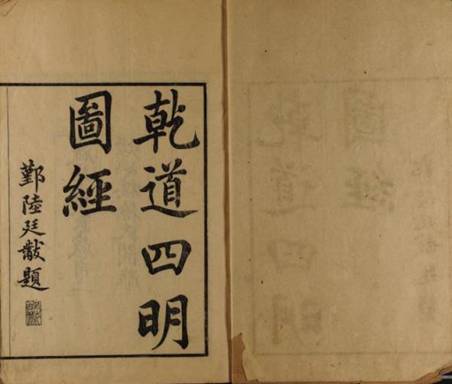 乾道四明
圖經
鄞陸廷黻題